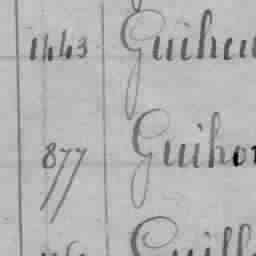 1443 Guiheu
877 Guihor
Guill